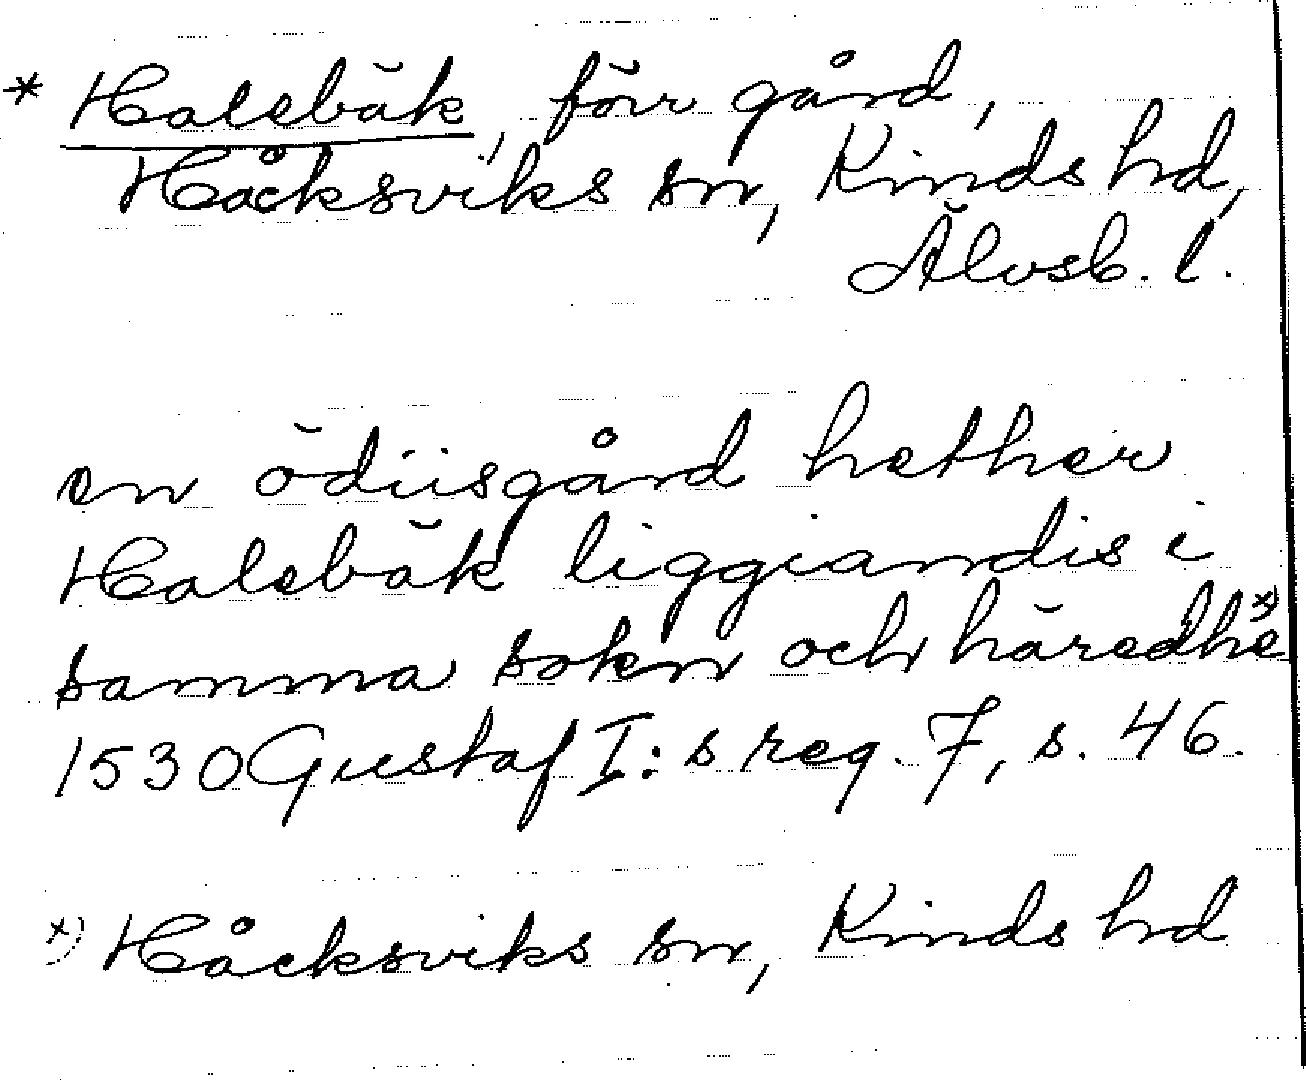 * Halebäk, förr gård,
Håcksviks sn, Kinds hd,
Älvsb. l.
en ödiisgård hether
Halebäk liggiandis i
samma sokn och häredhe x)
1530 Gustaf I:s reg. 7, s. 46.
x) Håcksviks sn, Kinds hd